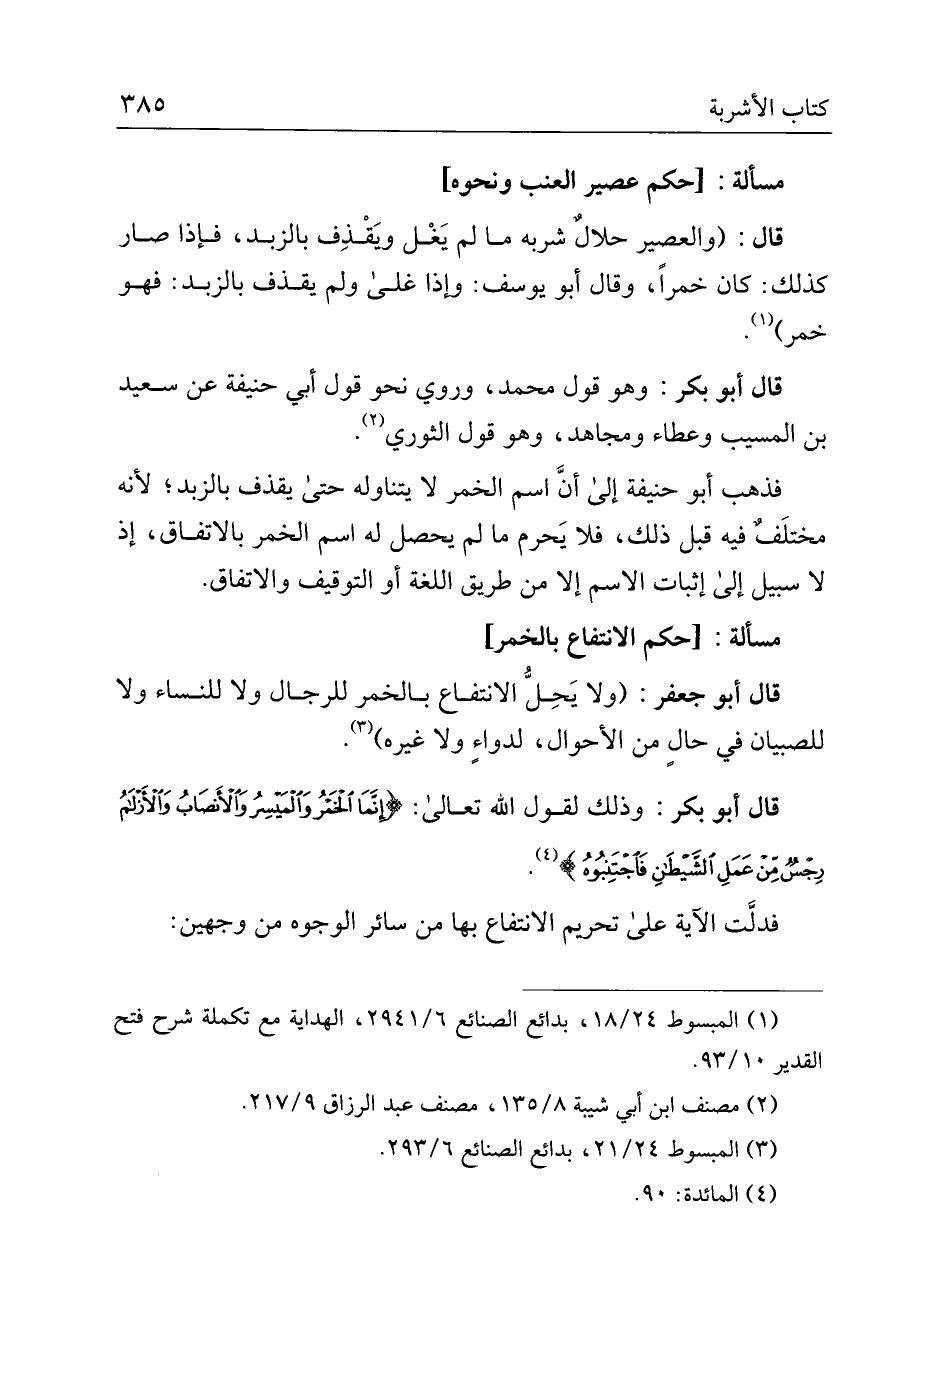 كتاب الأشربة ٣٨٥
مسألة : [حكم عصير العنب ونحوه]
قال : (والعصير حلالٌ شربه مـا لم يَغْـلِ ويَقْـذِف بالزبـد، فـإذا صـار
كذلك: كان خمراً، وقال أبو يوسف: وإذا غلـىٰ ولم يقـذف بالزبـد: فهـو
خمر)(١).
قال أبو بكر : وهو قول محمد، وروي نحو قول أبي حنيفة عن سـعيد
بن المسيب وعطاء ومجاهد، وهو قول الثوري(٢).
فذهب أبو حنيفة إلىٰ أنَّ اسم الخمر لا يتناوله حتىٰ يقذف بالزبد؛ لأنه
مختلَفٌ فيه قبل ذلك، فلا يَحرم ما لم يحصل له اسم الخمر بالاتفـاق، إذ
لا سبيل إلىٰ إثبات الاسم إلا من طريق اللغة أو التوقيف والاتفاق.
مسألة : [حكم الانتفاع بالخمر]
قال أبو جعفر : (ولا يَحِـلُّ الانتفـاع بـالخمر للرجـال ولا للنـساء ولا
للصبيان في حالٍ من الأحوال، لدواءٍ ولا غيره)(٣).
قال أبو بكر : وذلك لقـول الله تعـالىٰ: ﴿إِنَّمَا ٱلْخَمْرُ وَٱلْمَيْسِرُ وَٱلْأَنصَابُ وَٱلْأَزْلَٰمُ
رِجْسٌ مِّنْ عَمَلِ ٱلشَّيْطَٰنِ فَٱجْتَنِبُوهُ﴾(٤).
فدلَّت الآية علىٰ تحريم الانتفاع بها من سائر الوجوه من وجهين:
(١) المبسوط ١٨/٢٤، بدائع الصنائع ٢٩٤١/٦، الهداية مع تكملة شرح فتح
القدير ٩٣/١٠.
(٢) مصنف ابن أبي شيبة ١٣٥/٨، مصنف عبد الرزاق ٢١٧/٩.
(٣) المبسوط ٢١/٢٤، بدائع الصنائع ٢٩٣/٦.
(٤) المائدة: ٩٠.